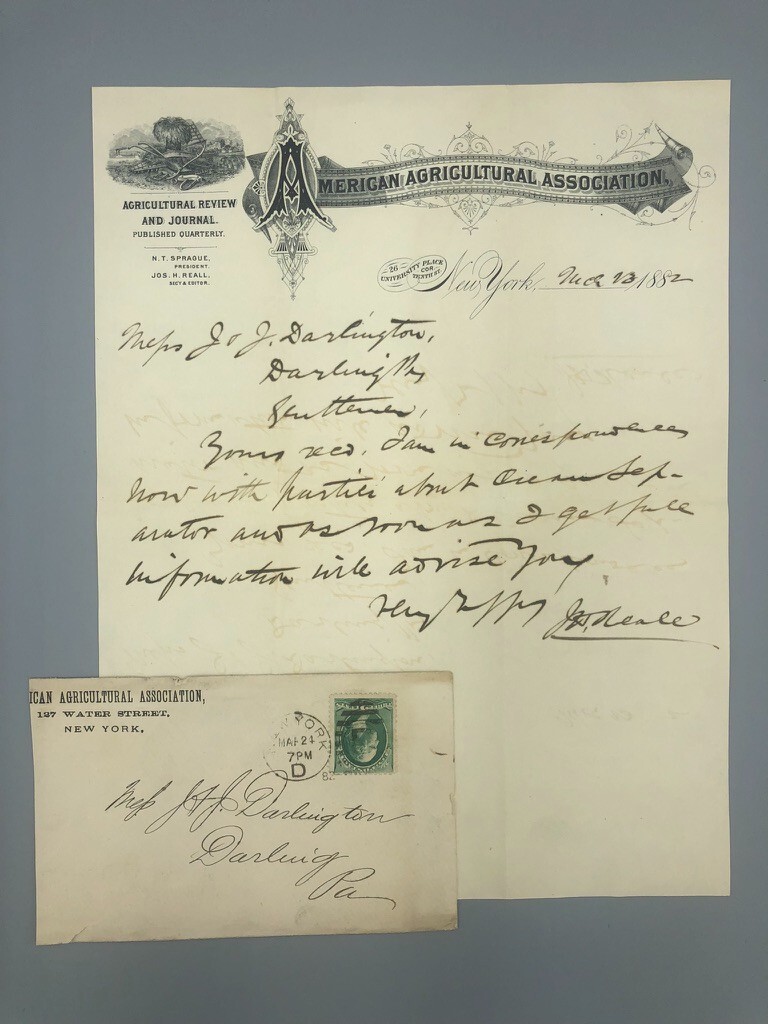 AGRICULTURAL REVIEW
AND JOURNAL.
PUBLISHED QUARTERLY.
N. T. SPRAGUE,
PRESIDENT.
JOS. H. REALL,
SECY & EDITOR.
AMERICAN AGRICULTURAL ASSOCIATION.
26
UNIVERSITY PLACE
COR
TENTH ST.
New York, Mch 23 1882
Mess J & J. Darlington,
Darling Pa
Gentlemen,
Yours recd. I am in correspondence
now with parties about Cream Sep-
arator and as soon as I get full
information will advise you
Very
Jos. H. Reall
ICAN AGRICULTURAL ASSOCIATION,
127 WATER STREET,
NEW YORK.
NEW YORK
MAR 24
7 PM
D
82
Mess J & J. Darlington
Darling
Pa